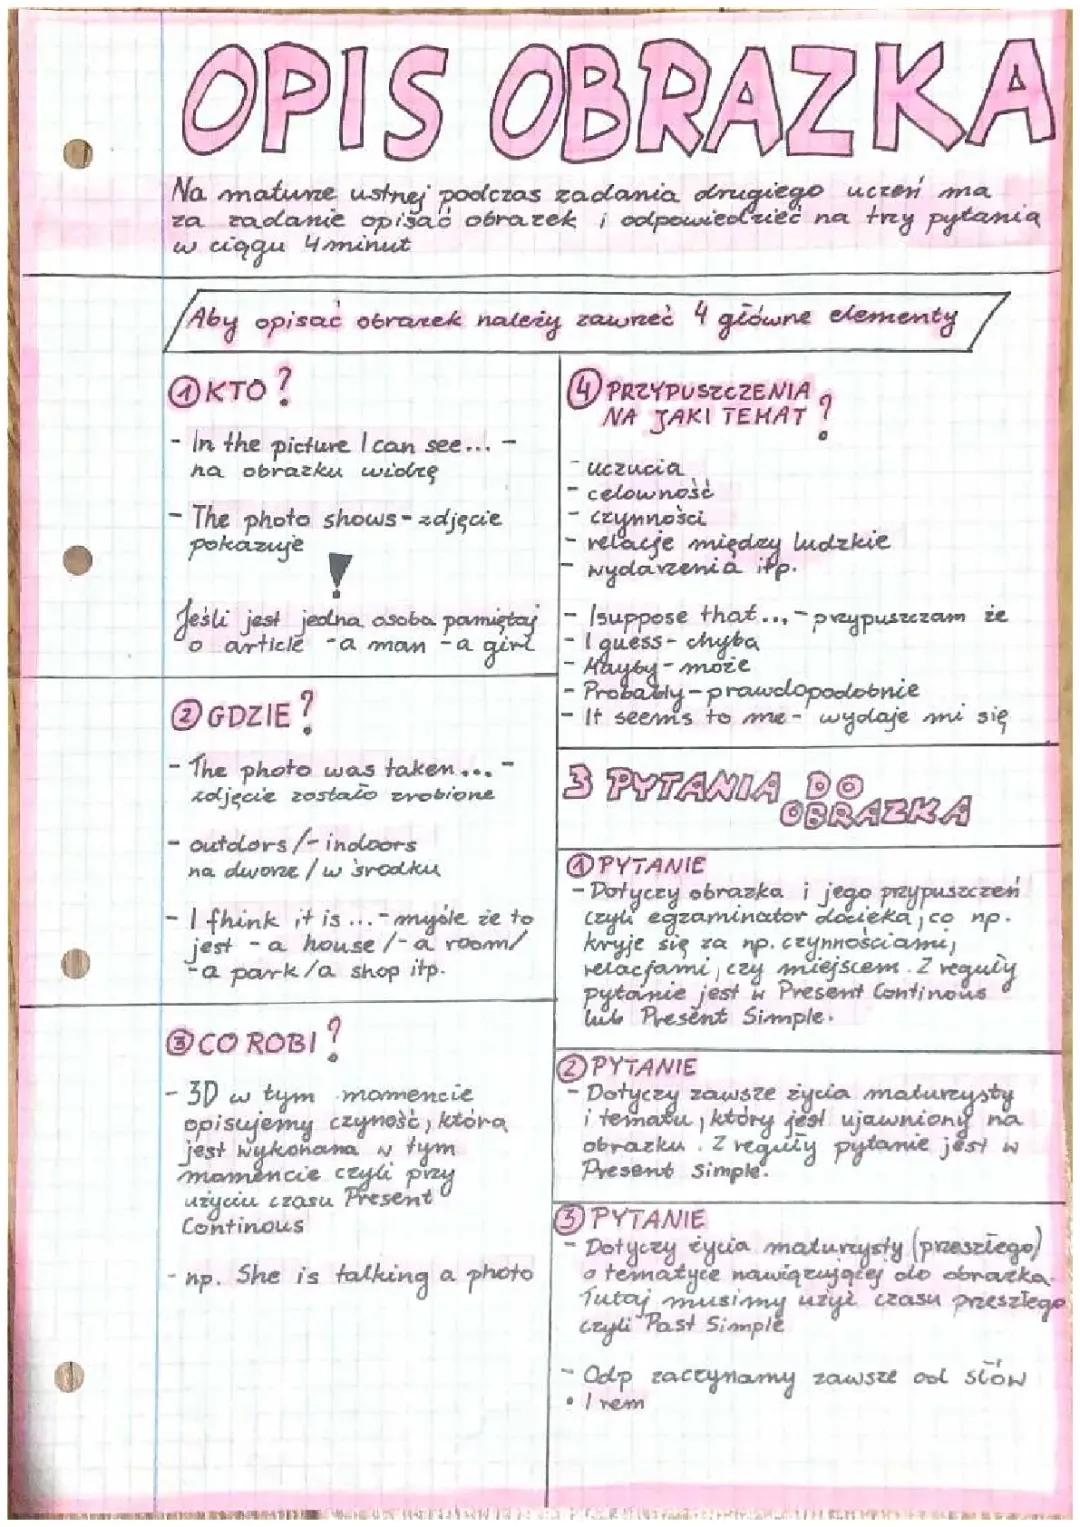 OPIS OBRAZKA
Na maturze ustnej podczas zadania drugiego uczeń ma
za zadanie opisać obrazek i odpowiedzieć na trzy pytania
w ciągu 4 minut
Aby opisać obrazek należy zawrzeć 4 główne elementy
① KTO?
- In the picture I can see... -
na obrazku widzę
- The photo shows - zdjęcie
pokazuje
!
Jeśli jest jedna osoba pamiętaj
o article - a man - a girl
② GDZIE?
- The photo was taken... -
zdjęcie zostało zrobione
- outdors / - indoors
na dworze / w środku
- I think it is ... - myśle że to
jest - a house / - a room /
- a park / a shop itp.
③ CO ROBI?
- 3D w tym momencie
opisujemy czyność, która
jest wykonana w tym
momencie czyli przy
użyciu czasu Present
Continous
- np. She is talking a photo
④ PRZYPUSZCZENIA
NA JAKI TEMAT?
- uczucia
- celowność
- czynności
- relacje między ludzkie
- wydarzenia itp.
- I suppose that... - przypuszczam że
- I guess - chyba
- Mayby - może
- Probably - prawdopodobnie
- It seems to me - wydaje mi się
3 PYTANIA DO
OBRAZKA
① PYTANIE
- Dotyczy obrazka i jego przypuszczeń
czyli egzaminator docieka, co np.
kryje się za np. czynnościami,
relacjami, czy miejscem. Z reguły
pytanie jest w Present Continous
lub Present Simple.
② PYTANIE
- Dotyczy zawsze życia maturzysty
i tematu, który jest ujawniony na
obrazku. Z reguły pytanie jest w
Present Simple.
③ PYTANIE
- Dotyczy życia maturzysty (przeszłego)
o tematyce nawiązującej do obrazka.
Tutaj musimy użyć czasu przeszłego
czyli Past Simple
- Odp zaczynamy zawsze od słów
• I rem